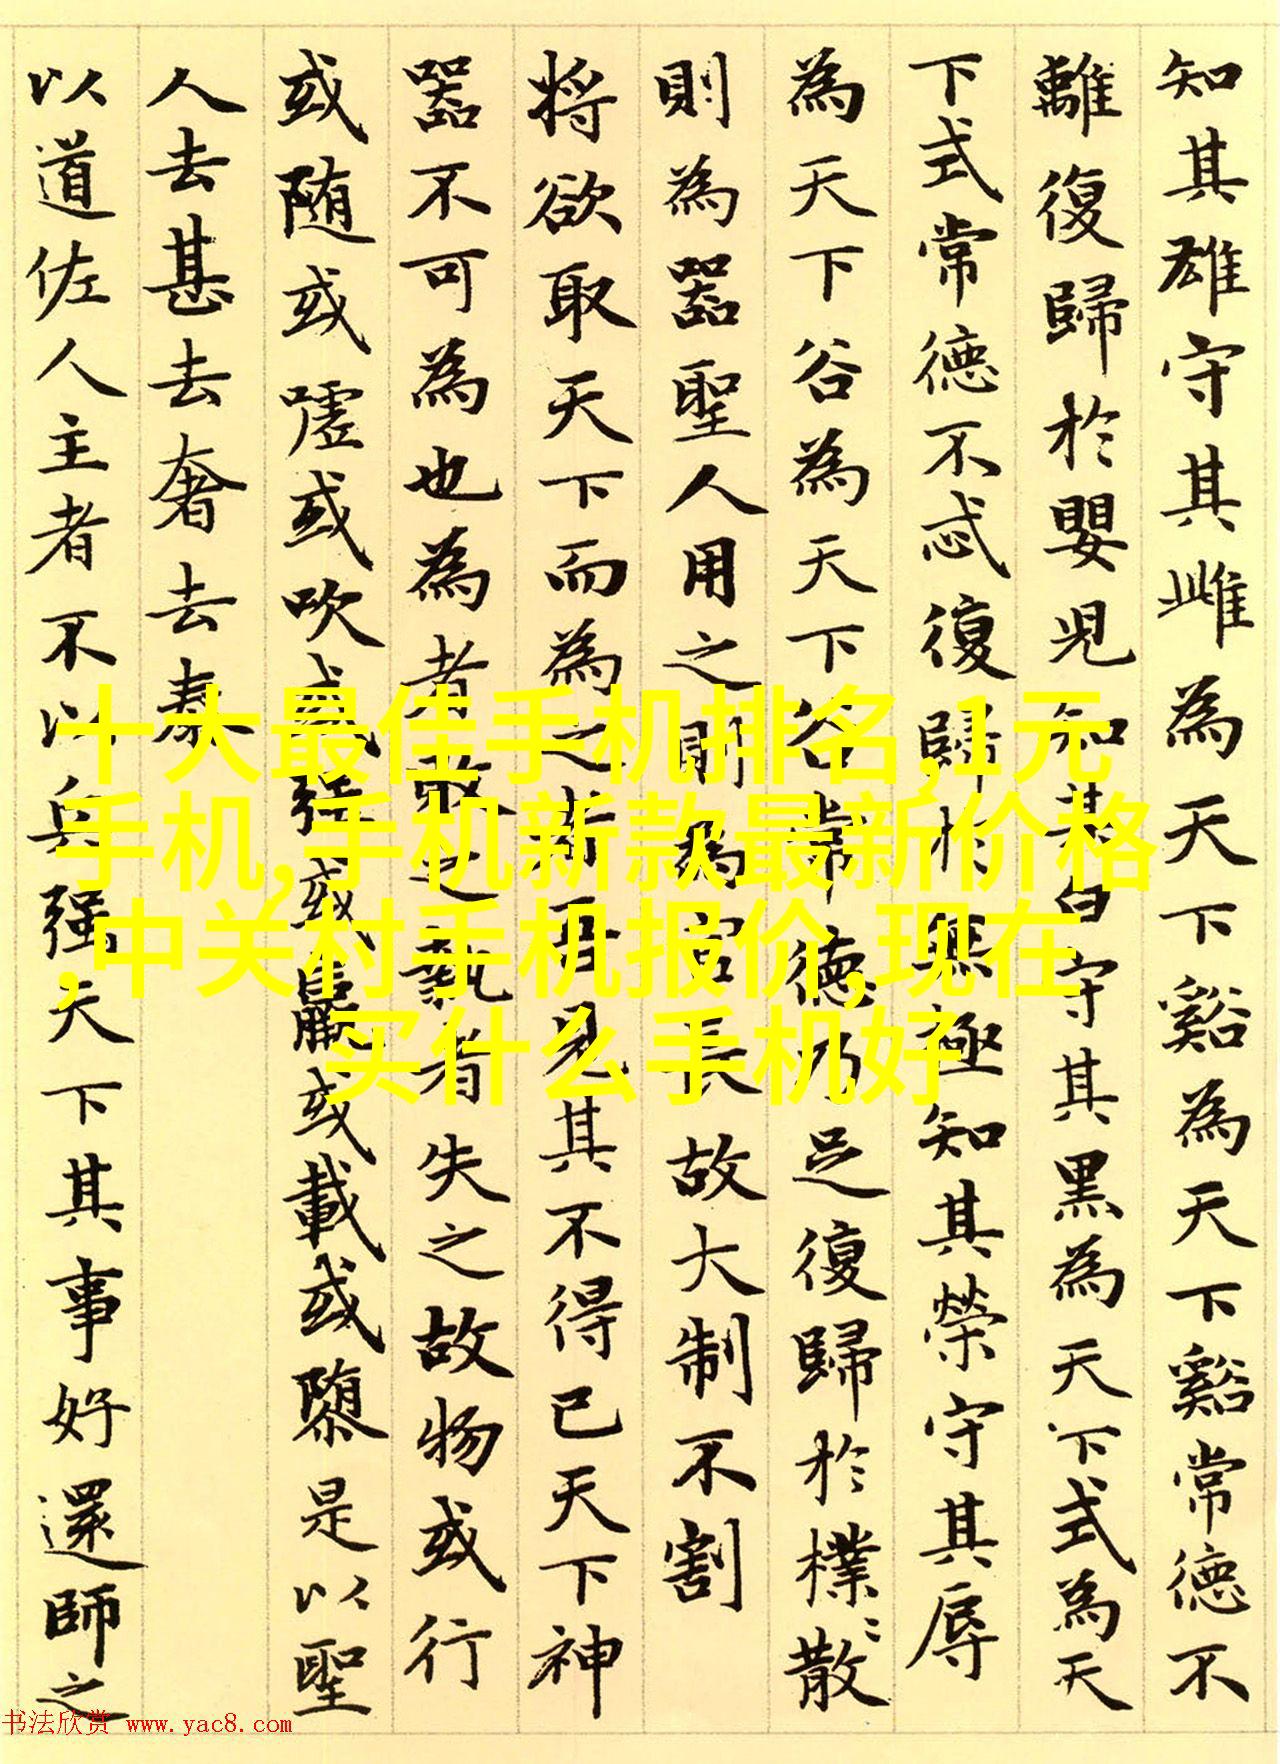 知其雄守其雌為天下谿為天下谿常德不
離復歸於嬰兒知其白守其黑為天下式為天
下式常德不忒復歸於無極知其榮守其辱
為天下谷為天下谷常德乃足復歸於樸〻散
則為器聖人用之則為官長故大制不割
將欲取天下而為之者吾見其不得已天下神
器不可為也為者敗之執者失之故物或行
或随或噓或吹或强或羸或載或隳是以聖
人去甚去奢去泰
以道佐人主者不以兵强天下其事好還師之
十大最佳手机排名,1元
手机,手机新款最新价格
,中关村手机报价,现在
买什么手机好
书法欣赏 www.yac8.com